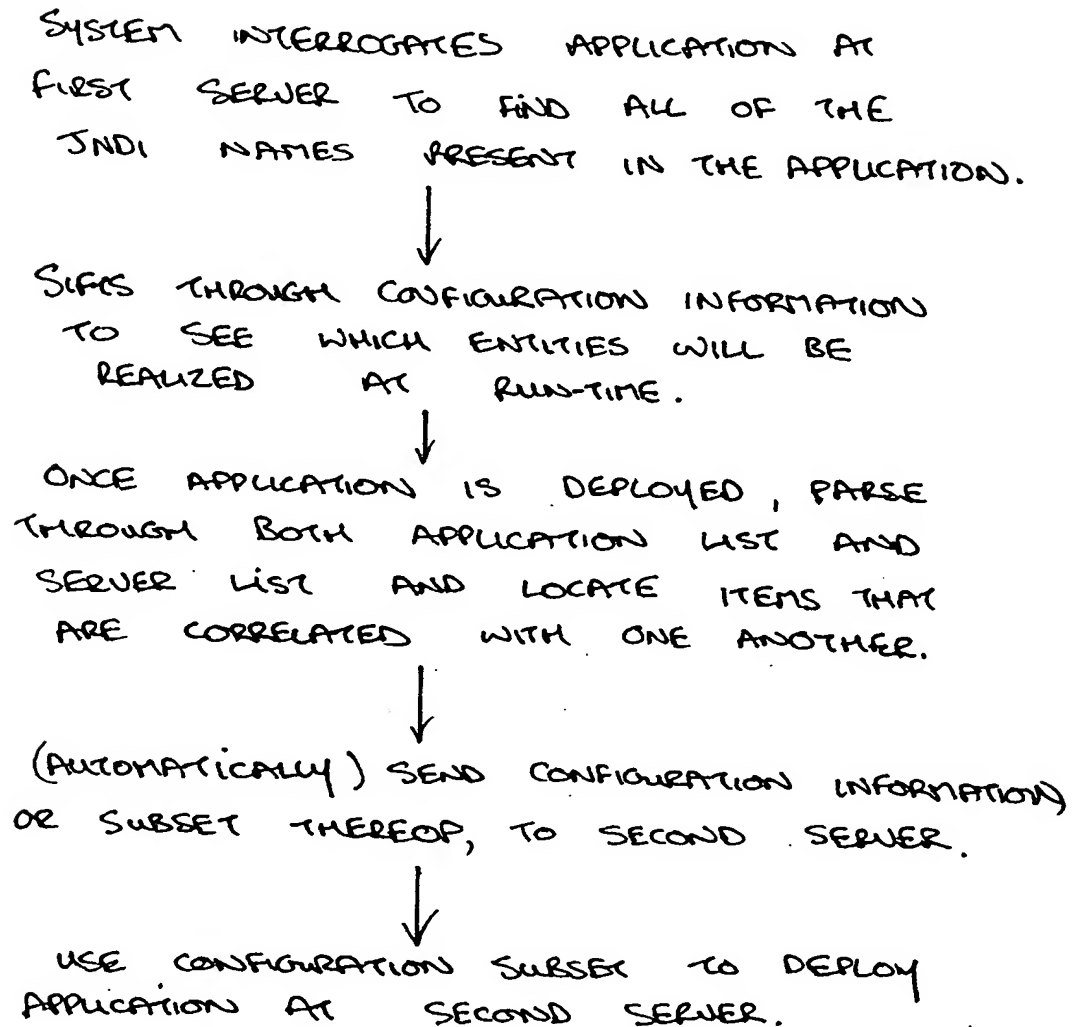 SYSTEM INTERROGATES APPLICATION AT
FIRST SERVER TO FIND ALL OF THE
JNDI NAMES PRESENT IN THE APPLICATION.
SIFTS THROUGH CONFIGURATION INFORMATION
TO SEE WHICH ENTITIES WILL BE
REALIZED AT RUN-TIME.
ONCE APPLICATION IS DEPLOYED, PARSE
THROUGH BOTH APPLICATION LIST AND
SERVER LIST AND LOCATE ITEMS THAT
ARE CORRELATED WITH ONE ANOTHER.
(AUTOMATICALLY) SEND CONFIGURATION INFORMATION,
OR SUBSET THEREOF, TO SECOND SERVER.
USE CONFIGURATION SUBSET TO DEPLOY
APPLICATION AT SECOND SERVER.